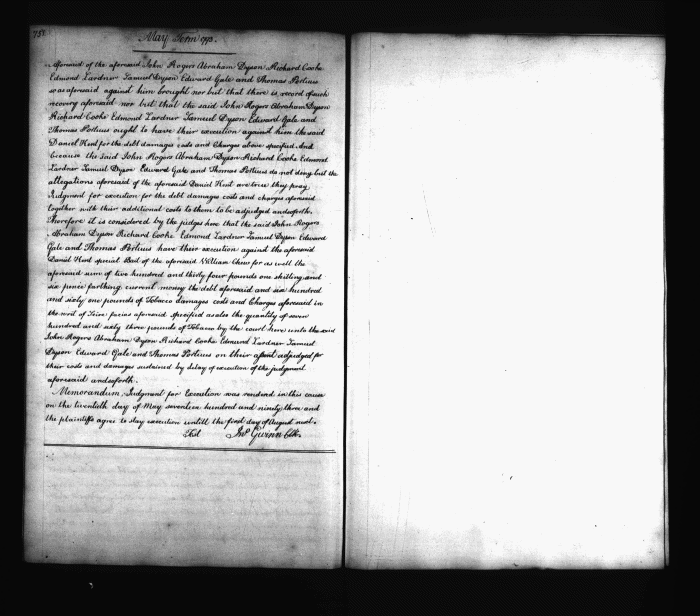 758
May Term 1793.
aforesaid of the aforesaid John Rogers Abraham Dyson Richard Cooke
Edmond Lardner Samuel Dyson Edward Gale and Thomas Porteus
was aforesaid against him brought nor but that there is record of such
recovery aforesaid nor but that the said John Rogers Abraham Dyson
Richard Cooke Edmond Lardner Samuel Dyson Edward Gale and
Thomas Porteus ought to have their execution against him the said
Daniel Kent for the debt damages costs and Charges above specified. And
because the said John Rogers Abraham Dyson Richard Cooke Edmond
Lardner Samuel Dyson Edward Gale and Thomas Porteus do not deny but the
allegations aforesaid of the aforesaid Daniel Kent are true they pray
Judgment for execution for the debt damages costs and charges aforesaid
together with their additional costs to them to be adjudged andsoforth.
Therefore it is considered by the judges here that the said John Rogers
Abraham Dyson Richard Cooke Edmond Lardner Samuel Dyson Edward
Gale and Thomas Porteus have their execution against the aforesaid
Daniel Kent special Bail of the aforesaid William Chew for as well the
aforesaid sum of two hundred and thirty four pounds one shilling and
six pence farthing current money the debt aforesaid and six hundred
and sixty one pounds of Tobacco damages costs and Charges aforesaid in
the writ of Scire facias aforesaid specified as also the quantity of seven
hundred and sixty three pounds of Tobacco by the court here unto the said
John Rogers Abraham Dyson Richard Cooke Edmund Lardner Samuel
Dyson Edward Gale and Thomas Porteus on their assent adjudged for
their costs and damages sustained by delay of execution of the judgment
aforesaid andsoforth.
Memorandum, Judgment for Execution was rendered in this cause
on the twentieth day of May seventeen hundred and ninety three and
the plaintiffs agree to stay execution untill the first day of August next.
Test Jno Gwinn Clk.